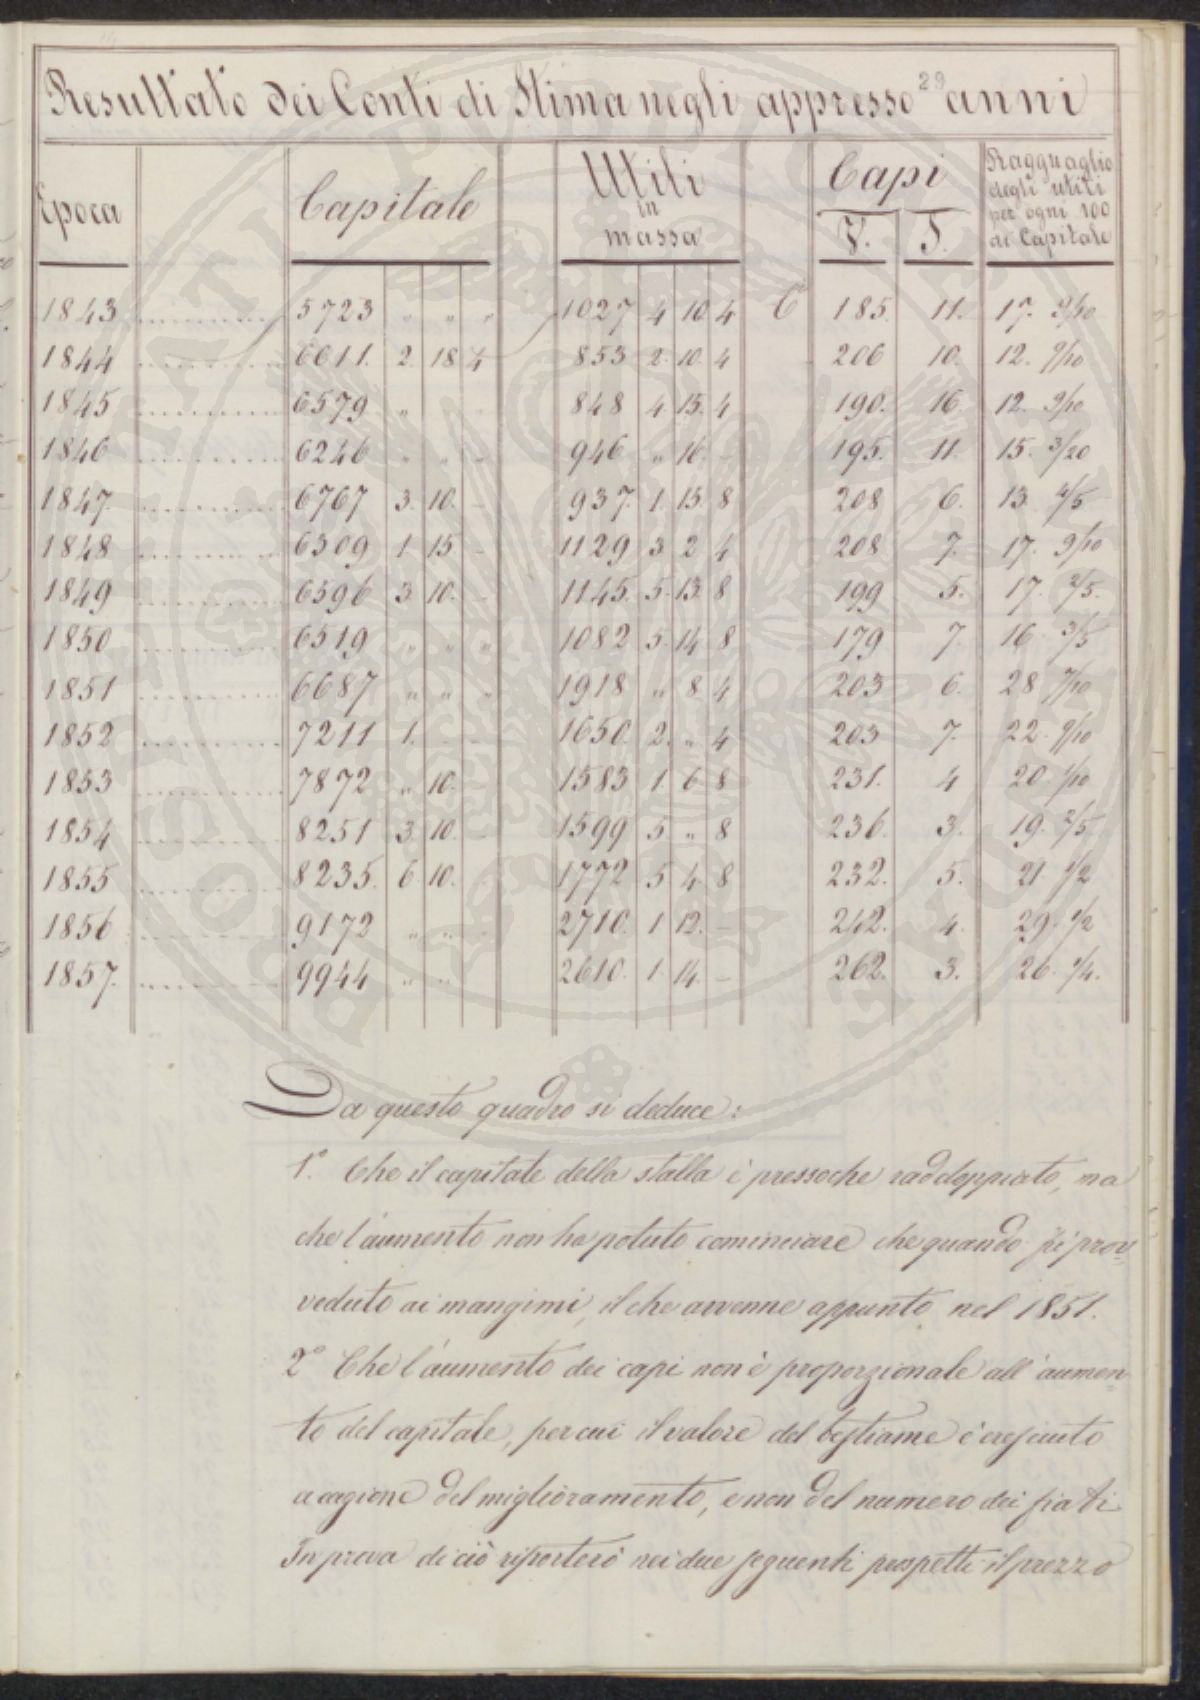 29
Resultato dei Conti di Stima negli appresso anni
Epoca Capitale Utili in massa Capi V. T. Ragguaglio degli utili per ogni 100 di Capitale
1843 5723 " " " 1027 4 10 4 C 185. 11. 17. 9/10
1844 6611. 2. 18 4 853 2. 10. 4 206 10. 12. 9/10
1845 6579 " 848 4 15. 4 190. 16. 12. 9/10
1846 6246 " " " 946 " 16. - 195. 11. 15. 3/20
1847. 6767 3. 10. - 937. 1. 15. 8 208 6. 13 4/5
1848 6309 1 15 - 1129 3 2 4 208 7. 17. 9/10
1849 6596 3 10. - 1145. 5. 13. 8 199 5. 17. 2/5.
1850 6519 " " " 1082 5. 14 8 179 7. 16 3/5
1851 6687 " " " 1918 " 8 4 203 6. 28 7/10
1852 7211 1. - - 1650. 2. " 4 203 7. 22. 9/10
1853 7872 " 10. - 1583 1. 6 8 231. 4 20. 1/10
1854 8251 3. 10. - 1599 5. " 8 236. 3. 19. 2/5.
1855 8235. 6. 10. 1772 5 4 8 232. 5. 21 1/2
1856 9172 " " 2710. 1 12. - 242. 4. 29. 1/2
1857. 9944 " " 2610. 1. 14. - 262. 3. 26. 1/4.
Da questo quadro si deduce:
1.° Che il capitale della stalla è pressoche raddoppiato, ma
che l'aumento non ha potuto cominciare che quando si prov=
veduto ai mangimi, il che avvenne appunto nel 1851.
2.° Che l'aumento dei capi non è proporzionale all'aumen=
to del capitale, per cui il valore del bestiame è cresciuto
a cagione del miglioramento, e non del numero dei fiati
In prova di ciò riporterò nei due seguenti prospetti il prezzo